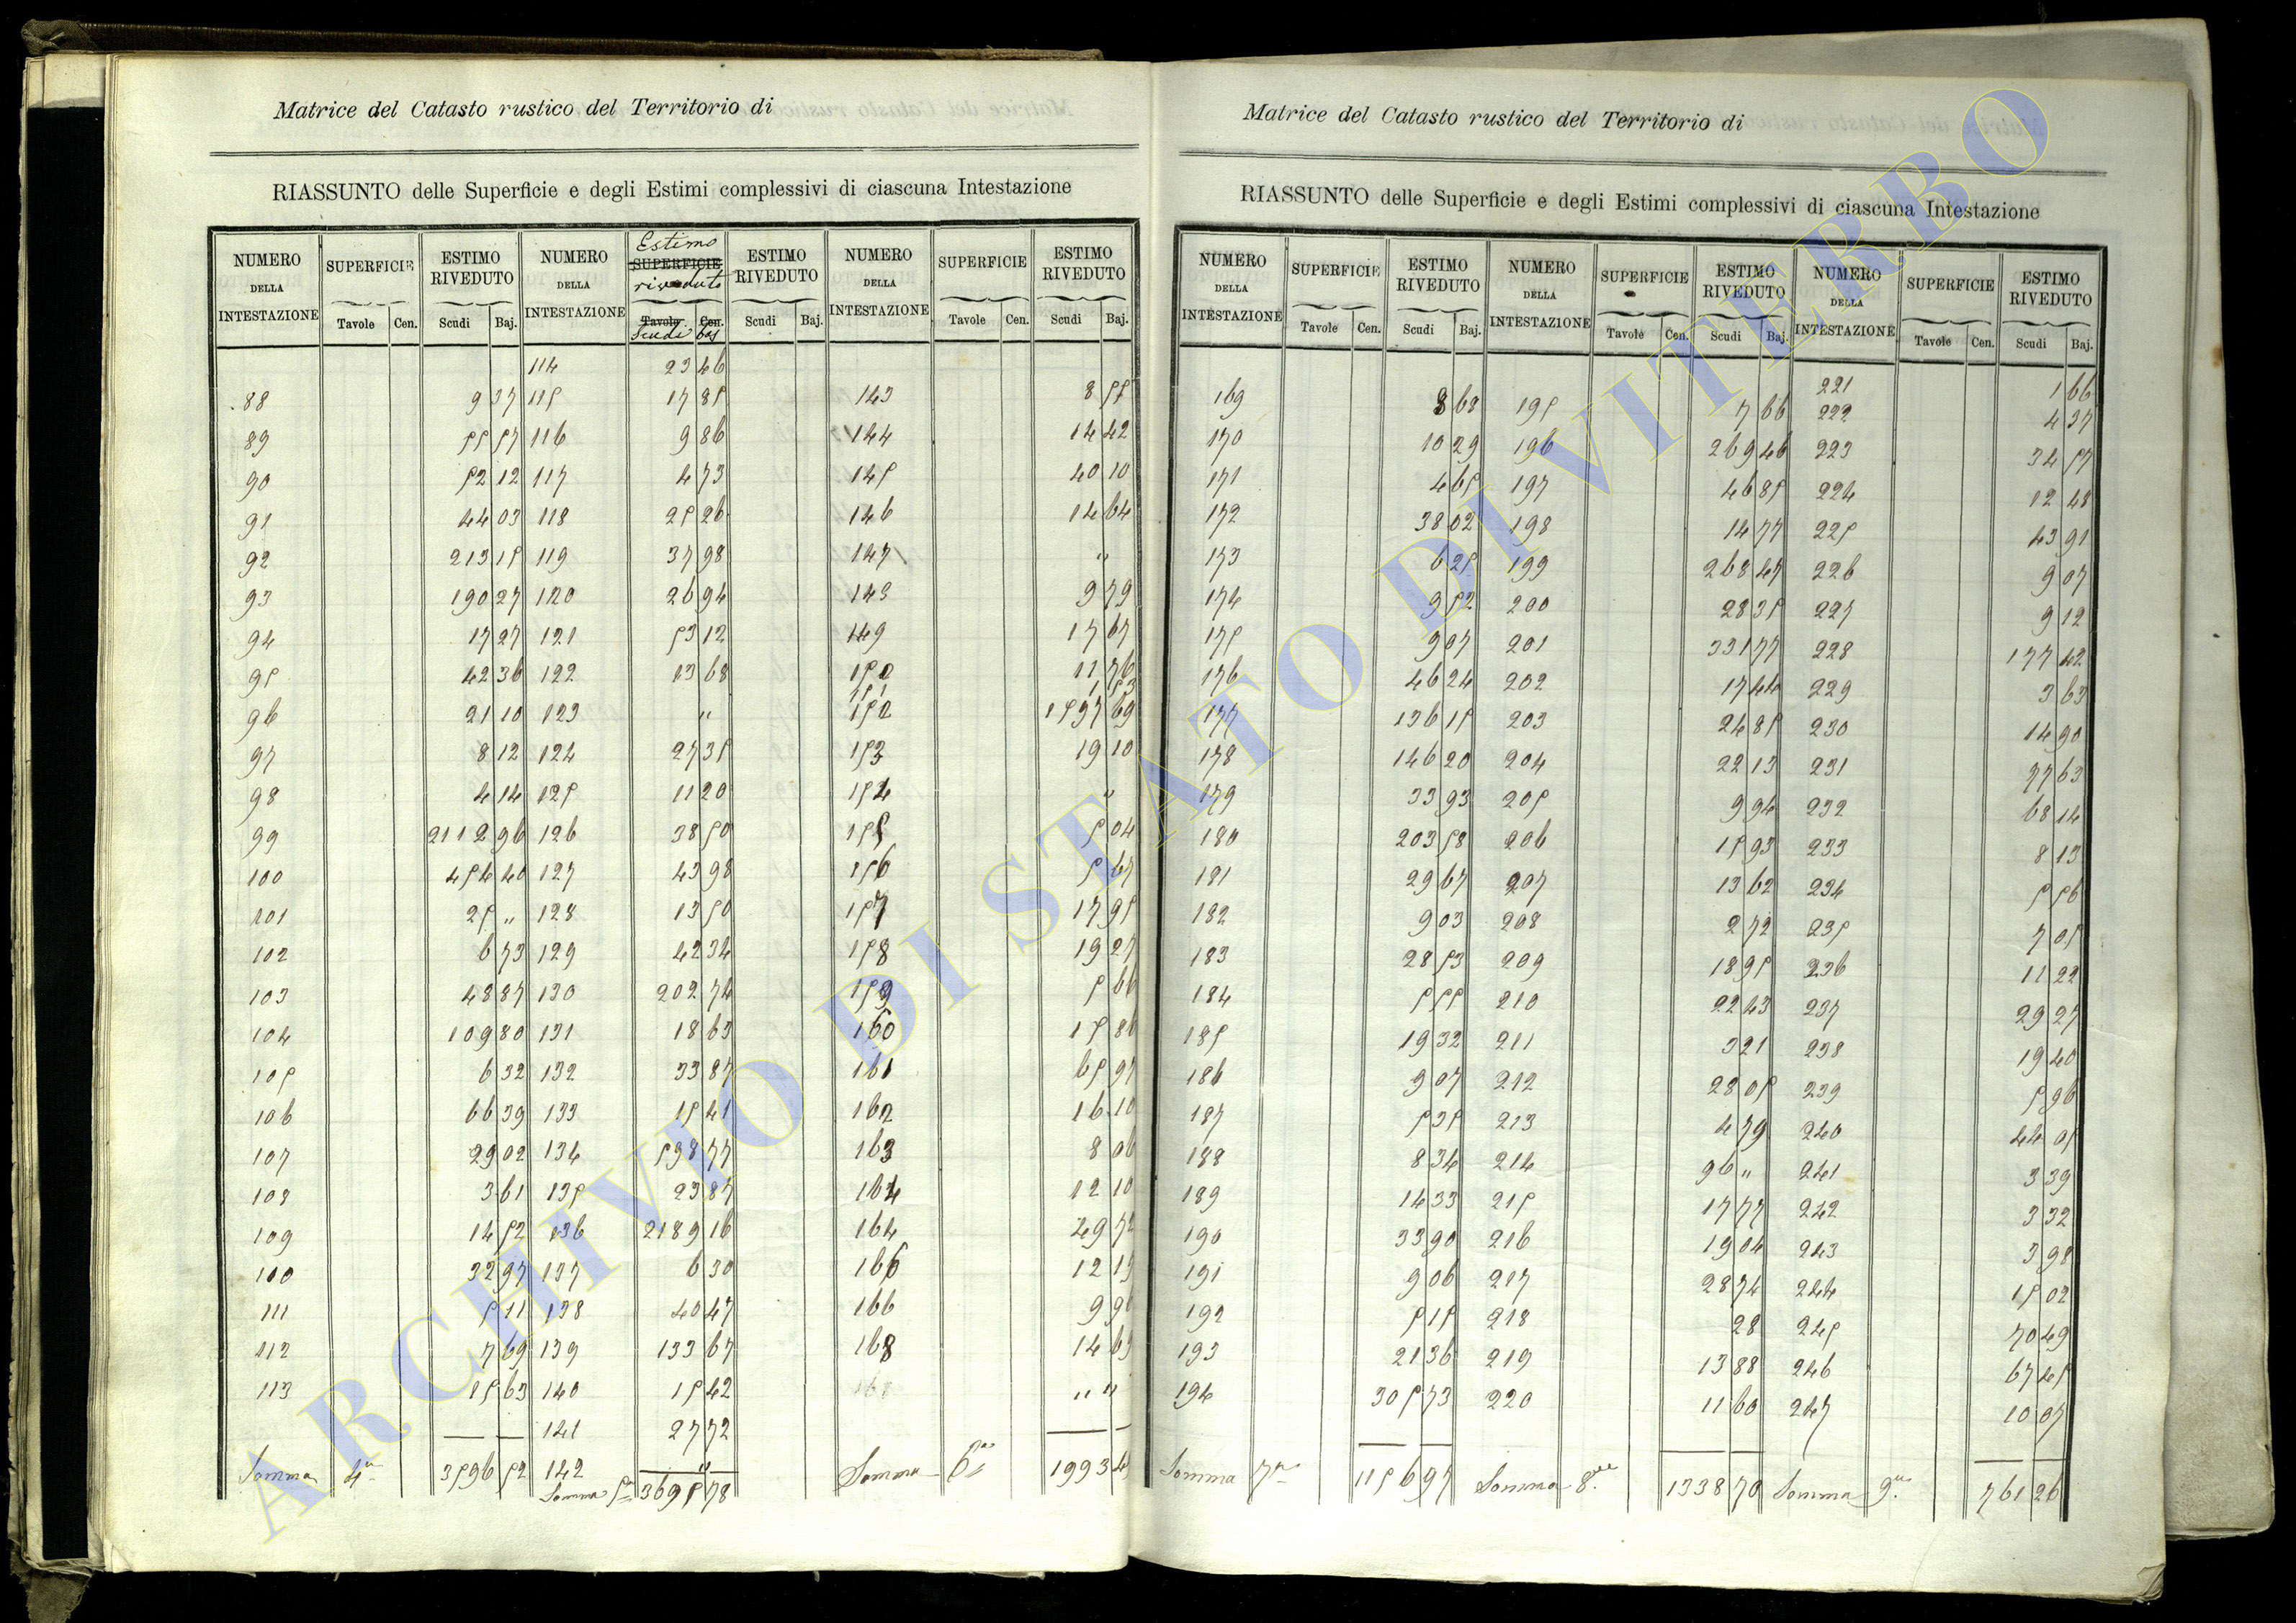 Matrice del Catasto rustico del Territorio di
RIASSUNTO delle Superficie e degli Estimi complessivi di ciascuna Intestazione
NUMERO DELLA INTESTAZIONE SUPERFICIE ESTIMO RIVEDUTO NUMERO DELLA INTESTAZIONE Estimo SUPERFICIE riveduto ESTIMO RIVEDUTO NUMERO DELLA INTESTAZIONE SUPERFICIE ESTIMO RIVEDUTO
Tavole Cen. Scudi Baj. Tavole Cen. Scudi Baj. Tavole Cen. Scudi Baj.
Scudi baj
114 23 46
88 9 37 115 17 85 143 8 57
89 55 57 116 9 86 144 14 42
90 52 12 117 4 73 145 40 10
91 44 03 118 25 26 146 14 64
92 213 15 119 37 98 147 "
93 190 27 120 26 94 148 9 79
94 17 27 121 53 12 149 17 67
95 42 36 122 13 68 150 11 76
151 1 53
96 21 10 123 " 152 1597 69
97 8 12 124 27 35 153 19 10
98 4 14 125 11 20 154 "
99 2112 96 126 38 50 155 5 04
100 454 40 127 43 98 156 5 67
101 25 " 128 13 50 157 17 95
102 6 73 129 42 34 158 19 27
103 48 87 130 202 74 159 5 66
104 109 80 131 18 63 160 15 86
105 6 32 132 33 87 161 65 97
106 66 39 133 15 41 162 16 10
107 29 02 134 598 77 163 8 06
108 3 61 135 23 87 164 12 10
109 14 52 136 2189 16 164 49 72
110 32 97 137 6 30 166 12 15
111 5 11 138 40 47 166 9 9
112 7 69 139 133 67 168 14 65
113 15 63 140 15 42 " "
141 27 72
Somma 4a 3596 52 142 " Somma 6a 1993 4
Somma 5a 3695 78
Matrice del Catasto rustico del Territorio di
RIASSUNTO delle Superficie e degli Estimi complessivi di ciascuna Intestazione
NUMERO DELLA INTESTAZIONE SUPERFICIE ESTIMO RIVEDUTO NUMERO DELLA INTESTAZIONE SUPERFICIE ESTIMO RIVEDUTO NUMERO DELLA INTESTAZIONE SUPERFICIE ESTIMO RIVEDUTO
Tavole Cen. Scudi Baj. Tavole Cen. Scudi Baj. Tavole Cen. Scudi Baj.
221 1 66
169 8 68 195 7 66 222 4 37
170 10 29 196 269 46 223 34 57
171 4 65 197 46 85 224 12 48
172 38 02 198 14 77 225 43 91
173 6 25 199 268 47 226 9 07
174 9 52 200 28 35 227 9 12
175 9 07 201 331 77 228 177 42
176 46 24 202 17 44 229 3 63
177 136 15 203 24 85 230 14 90
178 146 20 204 22 13 231 77 63
179 33 93 205 9 94 232 68 14
180 203 58 206 15 93 233 8 13
181 29 67 207 13 62 234 5 56
182 9 03 208 2 72 235 7 05
183 28 53 209 18 95 236 11 22
184 5 55 210 22 43 237 29 27
185 19 32 211 3 21 238 19 40
186 9 07 212 28 05 239 5 96
187 5 35 213 4 79 240 44 05
188 8 34 214 96 " 241 3 39
189 14 33 215 17 77 242 3 32
190 33 90 216 19 04 243 3 98
191 9 06 217 28 74 244 15 02
192 5 15 218 28 245 70 49
193 21 36 219 13 88 246 67 45
194 305 73 220 11 60 247 10 07
Somma 7a 1156 97 Somma 8a 1338 70 Somma 9a 761 26
ARCHIVIO DI STATO DI VITERBO